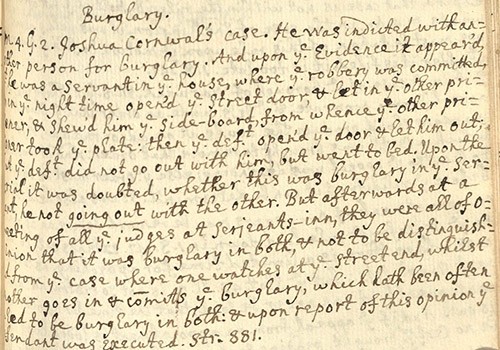 Burglary.
m. 4. G. 2. Joshua Cornwal's case. He was indicted with an-
ther person for burglary. And upon ye Evidence it appear'd,
he was a servant in ye house, where ye robbery was committed,
in ye night time open'd ye street door, & let in ye other pri-
oner, & shew'd him ye side-board, from whence ye other pri-
oner took ye plate: then ye deft open'd ye door & let him out:
ut ye deft did not go out with him, but went to bed. Upon the
rial it was doubted, whether this was burglary in ye ser-
nt, he not going out with the other. But afterwards at a
eeting of all ye judges at Serjeants-inn, they were all of o-
inion that it was burglary in both, & not to be distinguish-
d from ye case where one watches at ye street end, whilst
other goes in & comitts ye burglary, which hath been often
led to be burglary in both: & upon report of this opinion ye
fendant was executed. Str. 881.